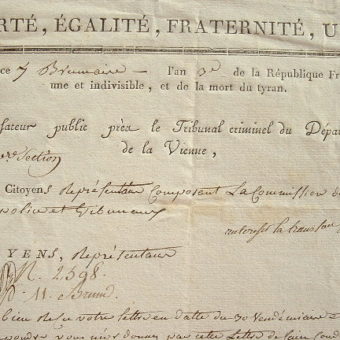 RTÉ, ÉGALITÉ, FRATERNITÉ, U
ce 7 Brumaire l'an 3e de la République Fr
une et indivisible, et de la mort du tyran.
sateur public près le Tribunal criminel du Dépa
de la Vienne,
Section
Citoyens Représentans Composant La Commission de
police et Tribunaux
YENS, Représentans
N. 2598.
11. Brum.
bien reçu votre lettre en datte du 30 Vendémiaire
par cette Lettre de faire